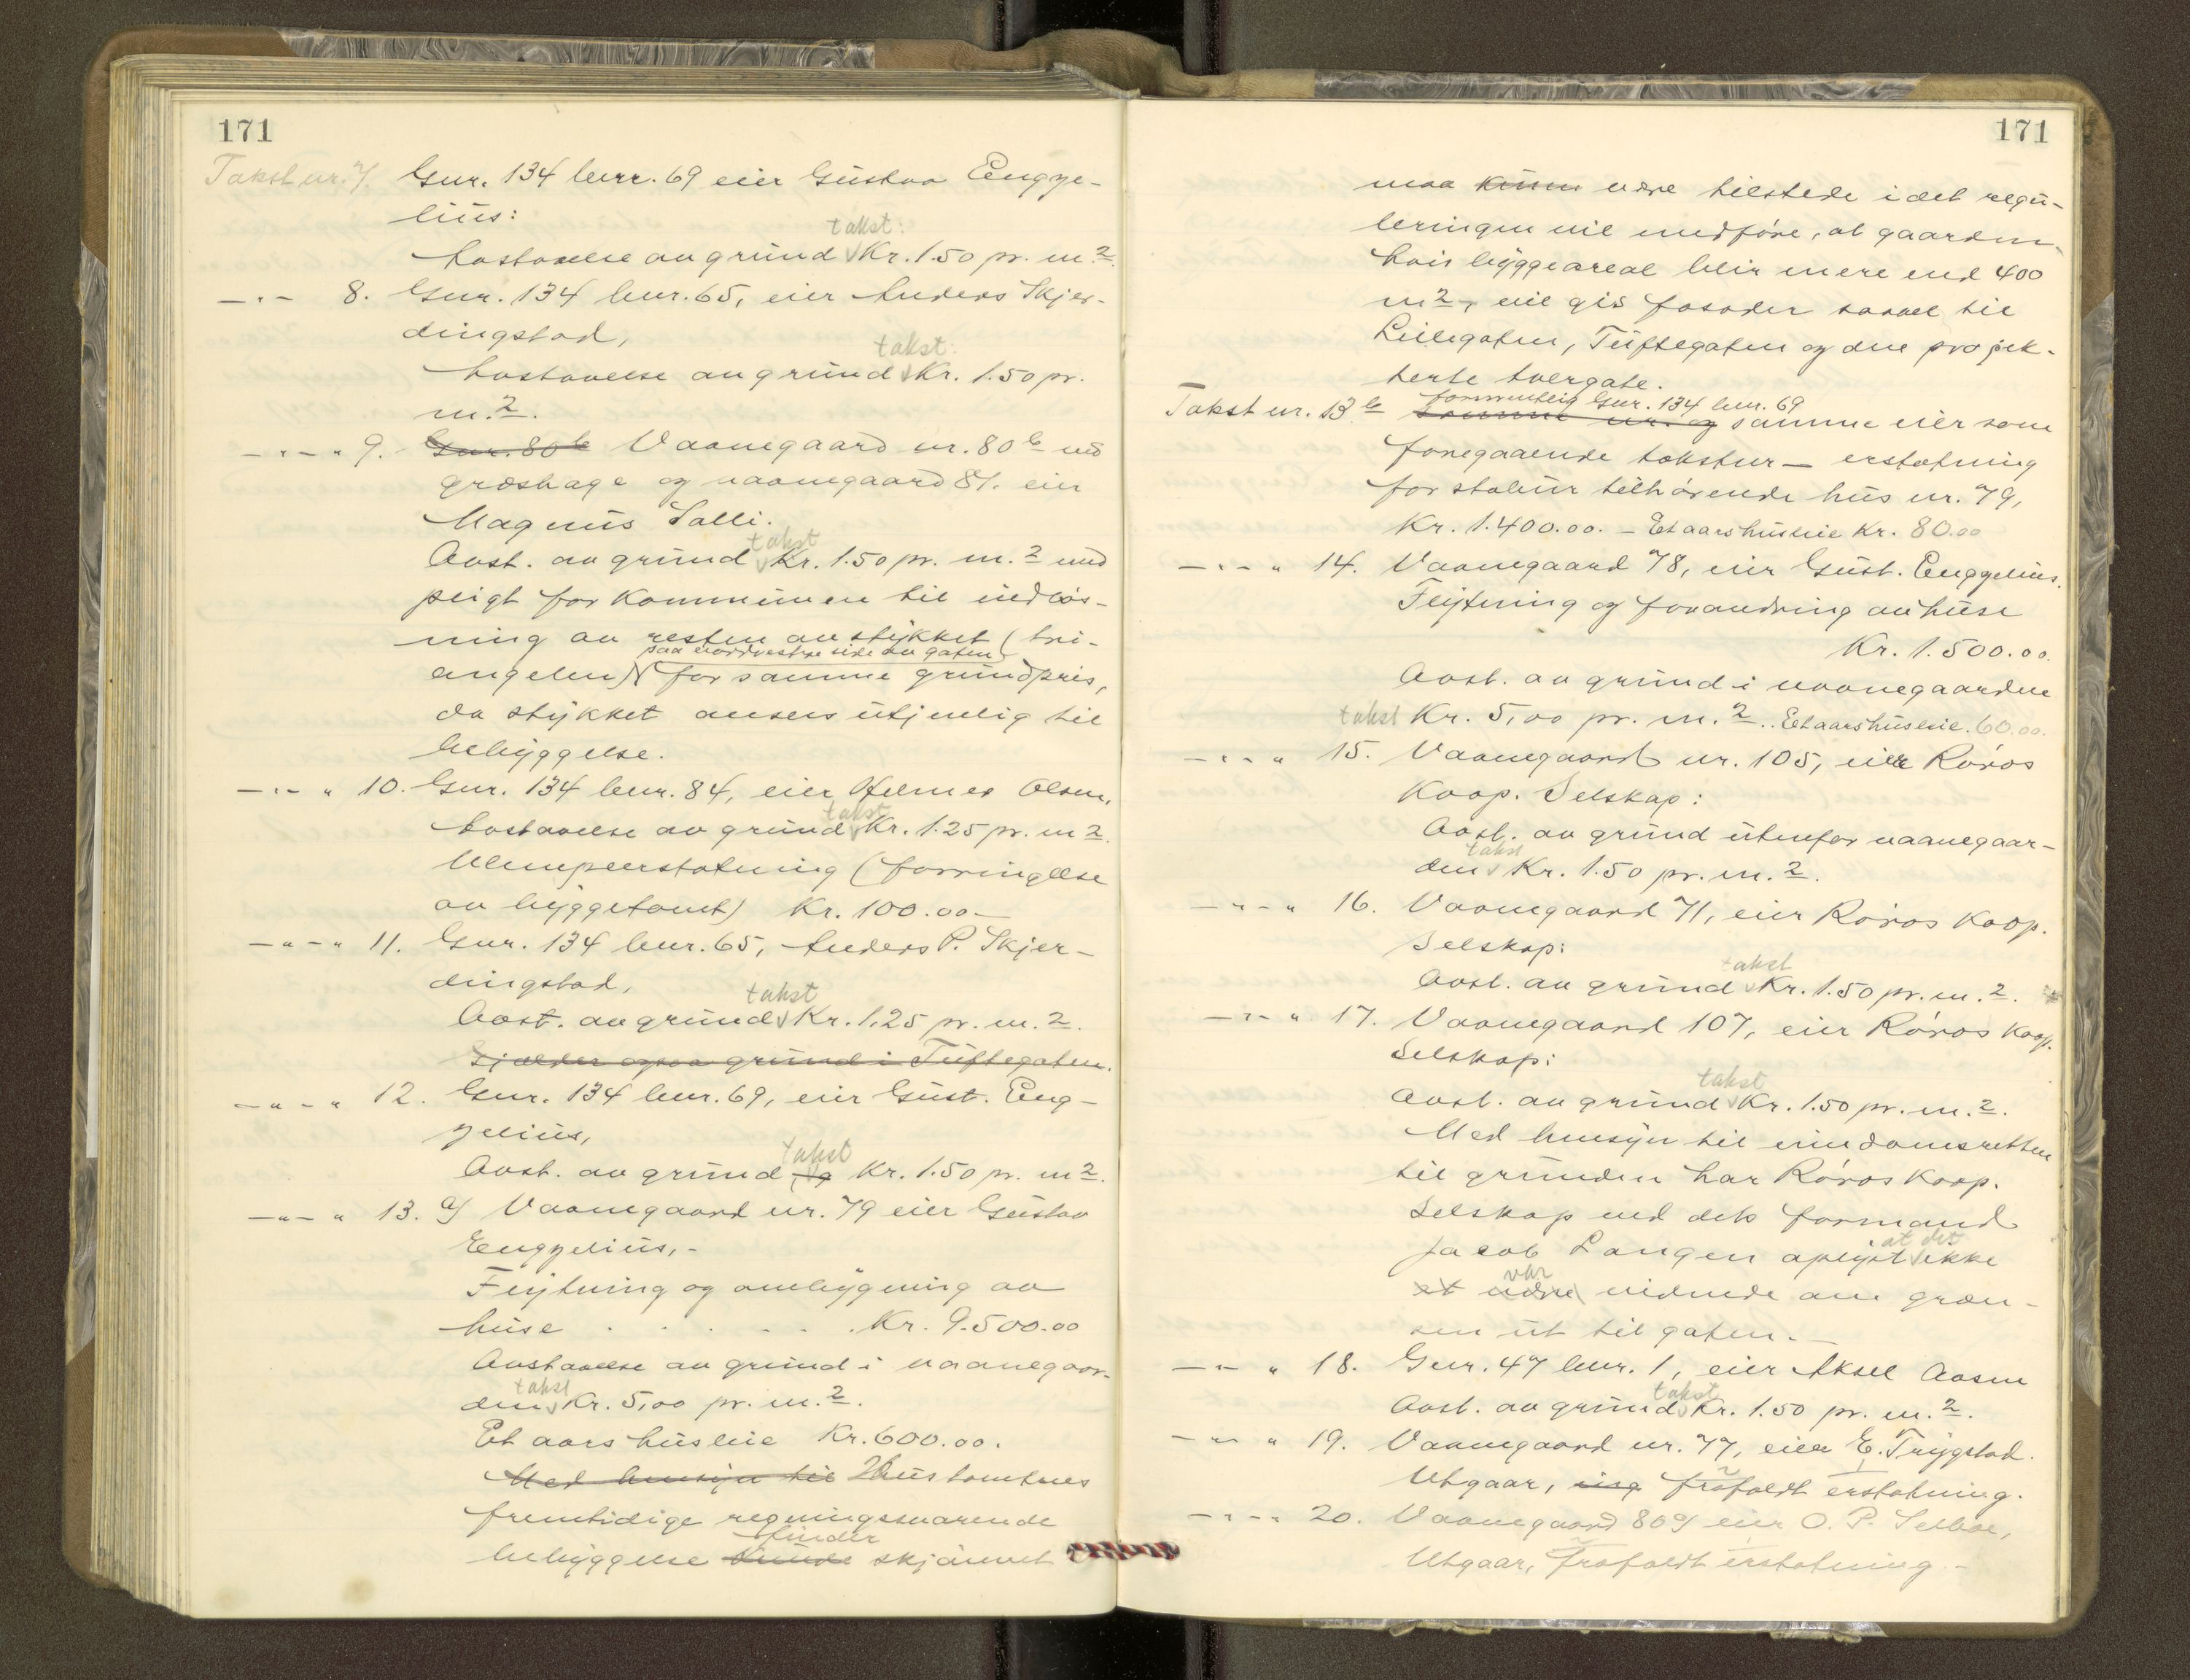 171
Takst nr. 7. Gnr. 134 bnr. 69 eier Gustav Engze-
lius:
takst:
Avstaaelse av grund Kr. 1.50 pr. m.2.
—"— 8. Gnr. 134 bnr. 65, eier Anders Skjer-
dingstad,
takst:
Avstaaelse av grund Kr. 1.50 pr.
m.2.
—"—" 9. Gnr. 80b Vaaningaard nr. 80b med
græshage og vaaningaard 81. eier
Magnus Salli.
takst
Avst. av grund Kr. 1.50 pr. m.2 med
pligt for Kommunen til indløs-
ning av resten av stykket (tri-
paa nordvestre side av gaten
angelen) for samme grundpris,
da stykket ansees utjenlig til
bebyggelse.
—"—" 10. Gnr. 134 bnr. 84, eier Helmer Olsen,
takst
Avstaaelse av grund Kr. 1.25 pr. m2.
Ulempeerstatning (forringelse
av byggetomt) Kr. 100.00—
—"—" 11. Gnr. 134 bnr. 65, Anders P. Skjer-
dingstad,
takst
Avst. av grund Kr. 1.25 pr. m.2.
Gjælder ogsaa grund i Tuftegaten.
—"—" 12. Gnr. 134 bnr. 69, eier Gust. Eng-
zelius,
takst
Avst. av grund Kr. 1.50 pr. m2.
—"—" 13. a) Vaaningaard nr. 79 eier Gustav
Engzelius,-
Flytning og ombygning av
huse . . . . . . Kr. 9.500.00
Avstaaelse av grund i vaaningaar-
takst
den Kr. 5,00 pr. m.2.
Et aars husleie Kr. 600.00.
Med hensyn til Hustomtens
fremtidige regningssvarende
finder
bebyggelse kunde skjønnet
171
maa kunne være tilstede i det regu-
leringen vil medføre, at gaarden,
hvis byggeareal blir mere end 400
m2, vil gis fasader saavel til
Lillegaten, Tuftegaten og den projek-
terte tvergate.
formentlig Gnr. 134 bnr. 69
Takst nr. 13b samme nr. og samme eier som
foregaaende takstnr — erstatning
for stabur tilhørende hus nr. 79,
Kr. 1.400.00. — Et aars husleie Kr. 80.00
—"—" 14. Vaaningaard 78, eier Gust. Engzelius.
Flytning og forandring av huse
Kr. 1.500.00.
Avst. av grund i vaaningaarden
takst Kr. 5,00 pr. m.2.. Et aars husleie. 60.00.
—"—" 15. Vaaningaard nr. 105, eier Røros
Koop. Selskap:
Avst. av grund utenfor vaaningaar-
takst
den Kr. 1.50 pr. m.2.
—"—" 16. Vaaningaard 71, eier Røros Koop.
Selskap:
takst
Avst. av grund Kr. 1.50 pr. m.2.
—"—" 17. Vaaningaard 107, eier Røros Koop.
Selskap:
takst
Avst. av grund Kr. 1.50 pr. m.2.
Med hensyn til eiendomsretten
til grunden har Røros Koop.
Selskap ved dets formand
at det
Jacob Langen oplyst ikke
var
at være vidende om græn-
sen ut til gaten.—
—"—" 18. Gnr. 47 bnr. 1, eier Aksel Aasen
takst
Avst. av grund Kr. 1.50 pr. m.2.
—"—" 19. Vaaningaard nr. 77, eier E. Trygstad.
Utgaar, frafaldt erstatning.
—"—" 20. Vaaningaard 80a) eier O. P. Selboe,
Utgaar, frafaldt erstatning.—